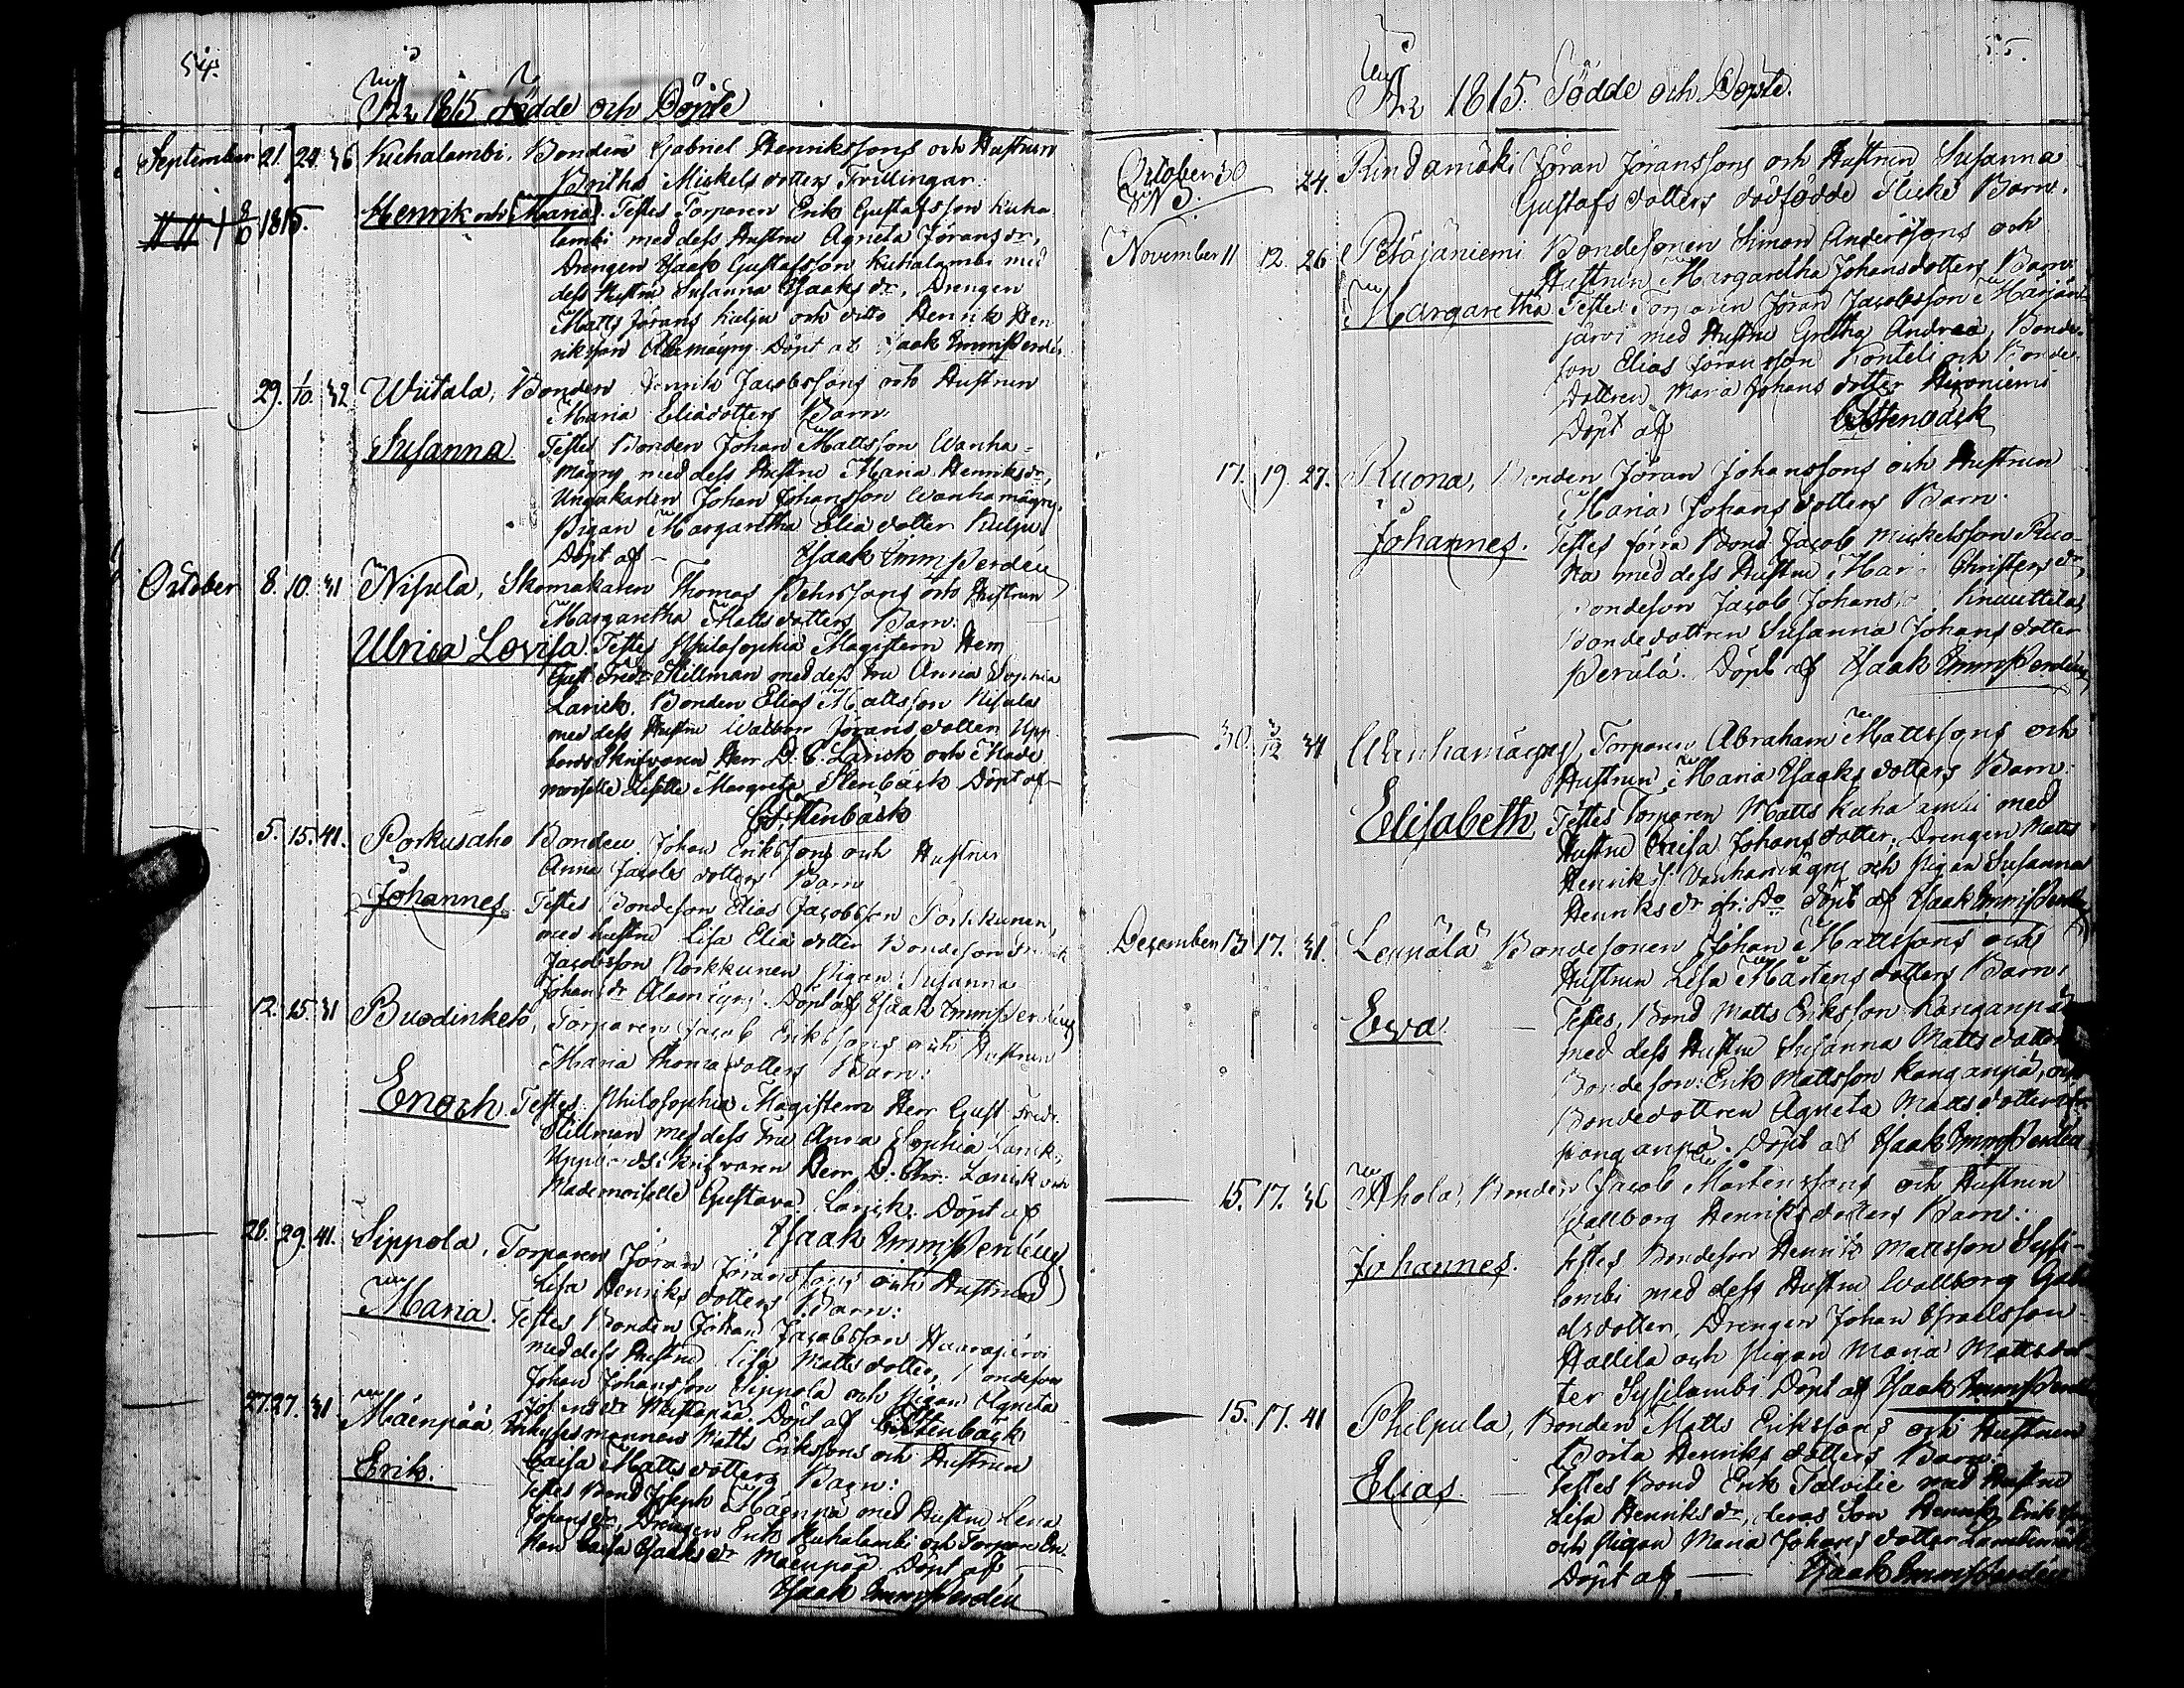 54.
År 1815 Födde och Döpte
September 21. 24. 36 Kuhalambi, Bonden Gabriel Henrikssons och Hustrun
Britha Mickels dotters Trillingar.
1815. Henrik och Maria. Testes Torparen Erik Gustafsson Kuha
lambi med dess Hustru Agneta Jörans dr,
Drengen Isaak Gustafsson Kuhalambi med
dess Hustru Susanna Isaaks dr, Drengen
Matts Jörans Kulju och ditto Henrik Hen
riksson Alamägny Döpt af Isaak Imm Perdén
29. 1/10. 32 Wiitala, Bonden Henrik Jacobssons och Hustrun
Maria Eliædotters Barn
Susanna Testes Bonden Johan Mattsson Wanha-
mägny med dess Hustru Maria Henriks dr,
Ungakarlen Johan Johansson Wanhamägny,
Pigan Margaretha Eliædotter Kulju
Döpt af - Isaak Imm Perdén
October 8. 10. 31 Nisula, Skomakaren Thomas Pehrssons och Hustrun
Margaretha Matts dotters Barn.
Ulrica Lovisa. Testes Philosophiæ Magistern Herr
Gust Fredr Stillman med dess Fru Anna Sophia
Lanck, Bonden Elias Mattsson Nisula
med dess Hustru Walbor Jörans dotter, Upp
bords Skrifvaren Herr D. C. Lanck och Made
moiselle Lisette Margreta Stenbäck Döpt af
C. Stenbäck
5. 15. 41. Porkusaho Bonden Johan Erikssons och Hustrun
Anna Jacobs dotters Barn
Johannes. Testes Bondeson Elias Jacobsson Porkkunen,
med hustru Lisa Eliædotter Bondeson
Jacobsson Porkkunen Pigan Susanna
Johans dr Alamägny. Döpt af Isaak Imm Perdén
12. 15. 31 Buodinketo, Torparen Jacob Erikssons och Hustrun
Maria Thomædotters Barn:
Enoch. Testes: Philosophiæ Magistern Herr Gust Fredr.
Stillman med dess Fru Anna Sophia Lanck,
Uppbords Skrifvaren Herr D. Chr. Lanck och
Mademoiselle Gustava Lanck. Döpt af
Isaak Imm Perdén
26. 29. 41. Sippola, Torparen Jöran Jöranssons och Hustrun
Lisa Henriks dotters Barn:
Maria. Testes Bonden Johan Jacobsson Haarajärvi
med dess Hustru Lisa Matts dotter, Bondeson
Johan Johansson Sippola och Pigan Agneta
Döpt af C. Stenbäck
27. 27. 31 Mäenpää, Inhysismannen Matts Erikssons och Hustrun
Caisa Matts dotters Barn:
Erik. Testes Bond Joseph Mäenpä med Hustru Lena
Johans dr, Drengen Erik Kuhalambi och Torpare En-
kan Caisa Isaaks dr Mäenpää Döpt af
Isaak Imm Perdén
55.
År 1815. Födde och Döpte.
October 30 24. Rindamäki Jöran Jöranssons och Hustrun Susanna
Gustafs dotters dödfödde Flicke Barn.
November 11 12. 26 Petäjäniemi Bondesonen Simon Anderssons och
Hustrun Margaretha Johansdotters Barn:
Margaretha Testes Torparen Jöran Jacobsson Marjan-
järvi med Hustru Gretha Andreæ, Bonde-
son Elias Jöransson Konteli och Bonde-
dottren Maria Johans dotter Hironiemi
Döpt af C. Stenbäck
17. 19. 27. Ruona, Bonden Jöran Johanssons och Hustrun
Maria Johans dotters Barn.
Johannes. Testes förra Bond Jacob Mickelsson Ruo-
na med dess Hustru Mar Christers dr,
Bondeson Jacob Johans Knuuttila,
Bondedottren Susanna Johans dotter
Perälä. Döpt af Isaak Imm Perdén
30. 3/12 31 Wanhamägny, Torparen Abraham Mattssons och
Hustrun Maria Isaaks dotters Barn.
Elisabeth Testes Torparen Matts Kuhalambi med
Hustru Caisa Johans dotter, Drengen Matts
Henrikss. Wanhamägny och Pigan Susanna
Henriks dr ifr. Do Döpt af Isaak Imm Perdén
December 13 17. 31. Leppälä Bondesonen Johan Mattssons och
Hustrun Lisa Mårtens dotters Barn:
Eva Testes, Bond Matts Eriksson Kanganpä
med dess Hustru Susanna Matts dotter
Bondeson: Erik Mattsson Kanganpä, och
Bondedottren Agneta Mattsdotter ifr
Kanganpä. Döpt af Isaak Imm Perdén
15. 17. 36 Ahola, Bonden Jacob Mårtenssons och Hustrun
Wallborg Henriks dotters Barn:
Johannes. Testes Bondeson Henrik Mattsson Sysi-
lambi med dess Hustru Wallborg Gabri
elsdotter, Drengen Johan Israelsson
Hallila och Pigan Maria Mattsdot
ter Sysilambi Döpt af Isaak Imm Perdén
15. 17. 41 Philpula, Bonden Matts Erikssons och Hustrun
Brita Henriks dotters Barn:
Elias Testes Bond Erik Talvitie med Hustru
Lisa Henriks dr, deras Son Henrik Eriksson
och Pigan Maria Johans dotter
Döpt af Isaak Imm Perdén